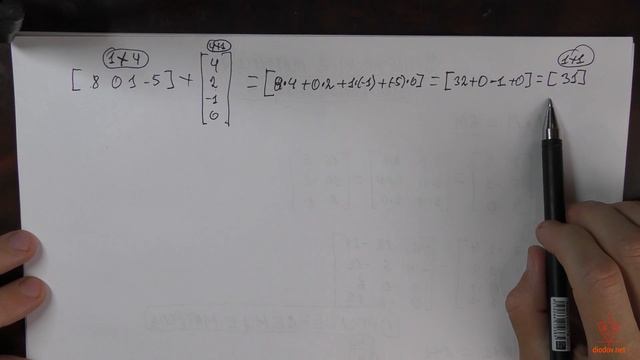 1×4 4×1 1×1
[8 0 1 -5] × [4 2 -1 0] = [8·4+0·2+1·(-1)+(-5)·0] = [32+0-1+0] = [31]
diodov.net